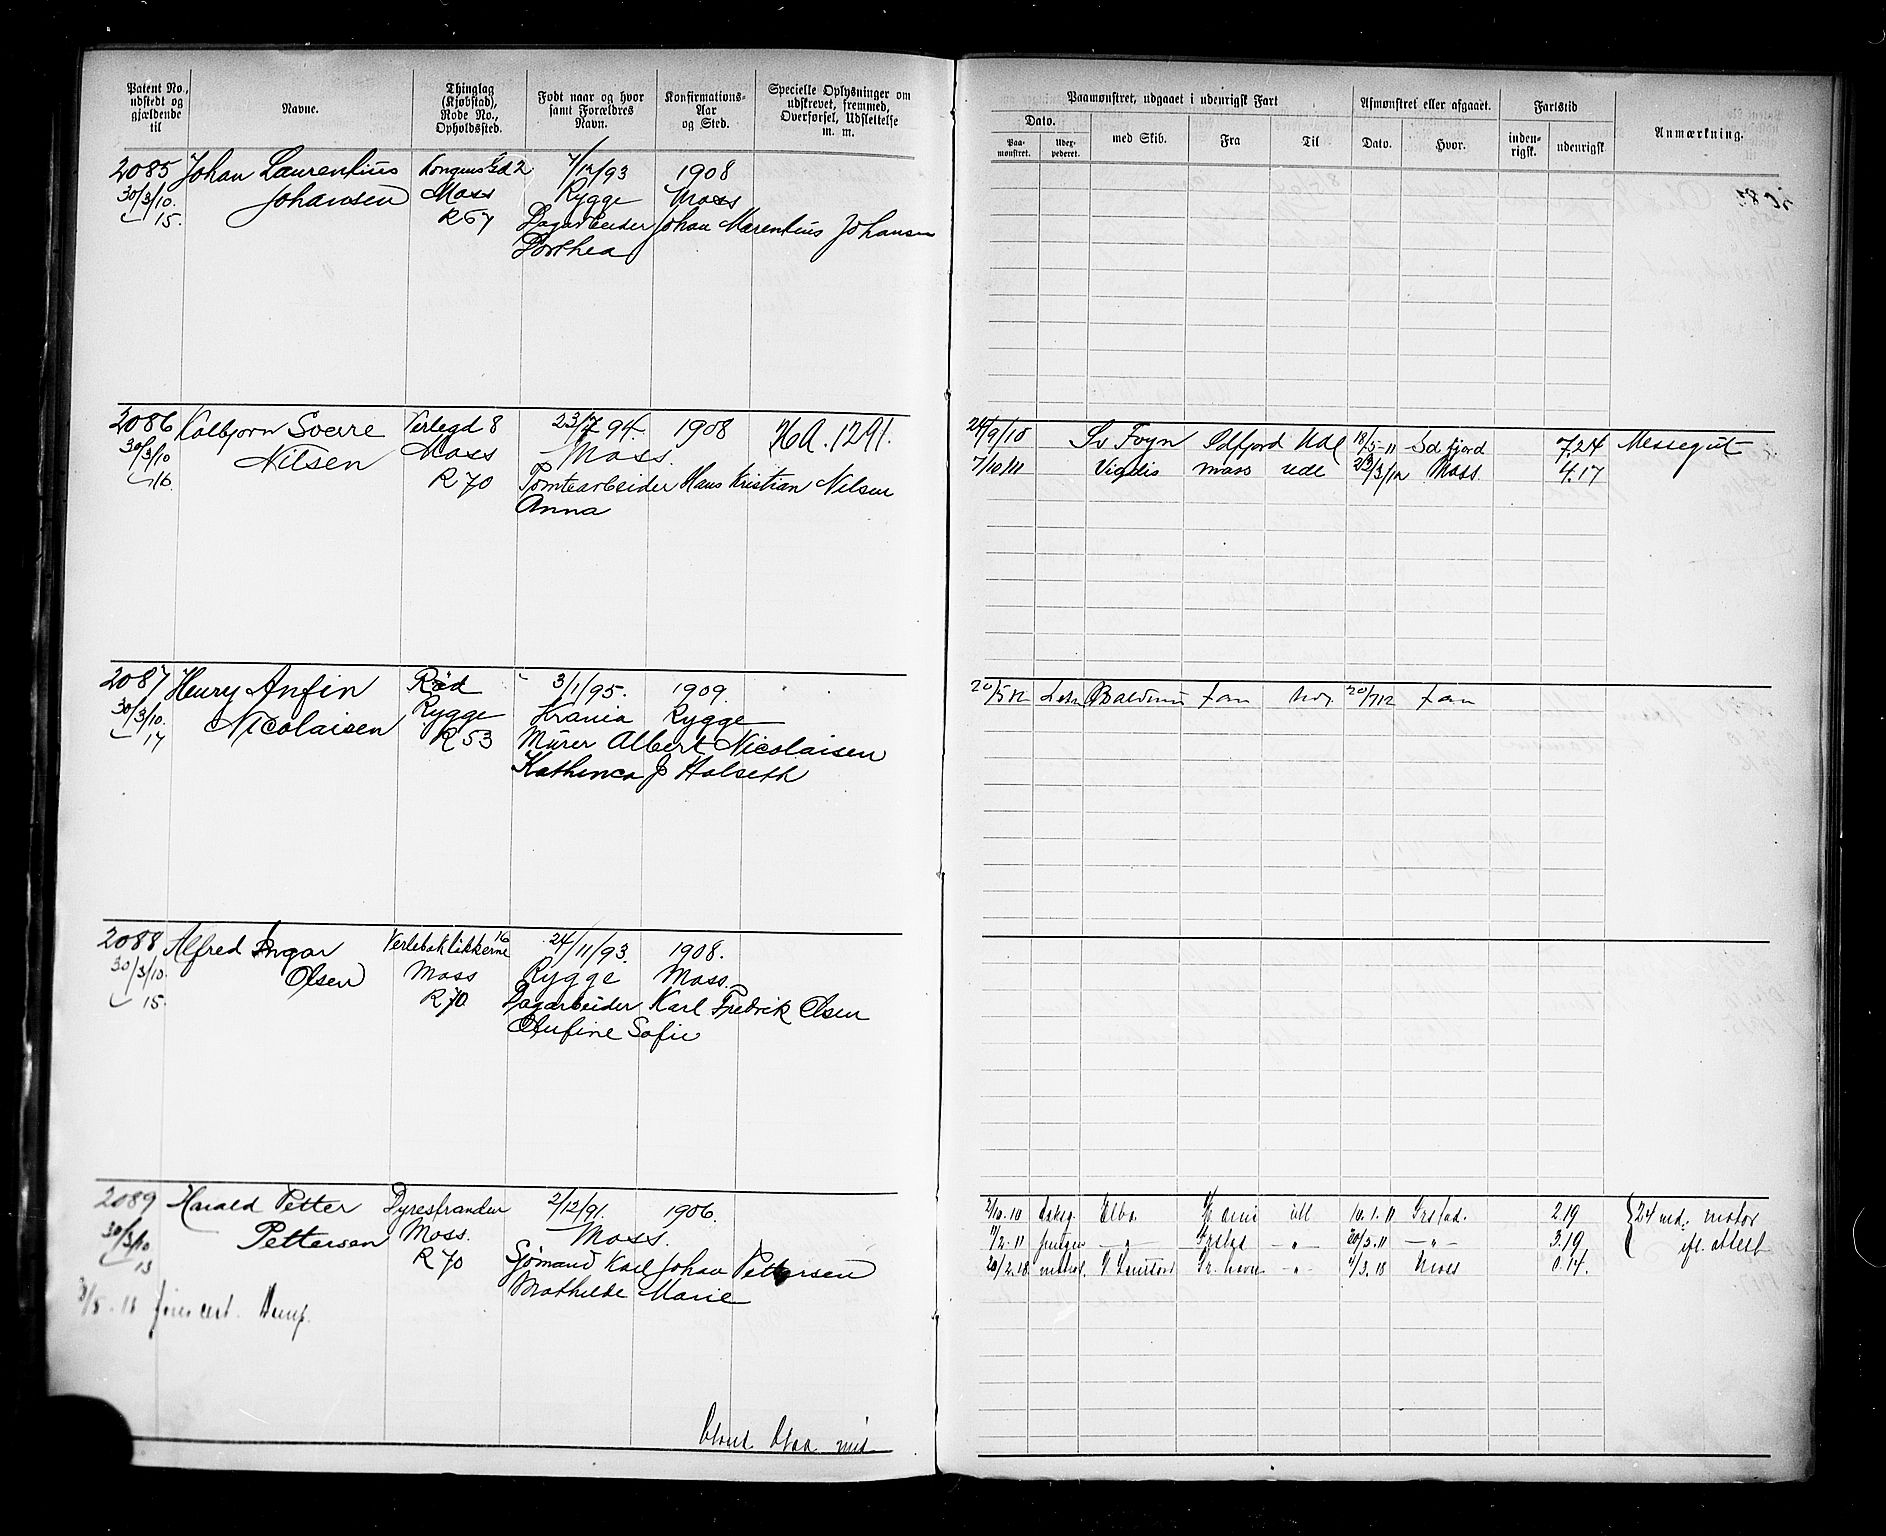 Patent No., udstedt og gjældende til
Navne.
Thinglag (Kjøbstad), Rode No., Opholdssted.
Født naar og hvor samt Forældres Navn.
Konfirmations-Aar og Sted.
Specielle Oplysninger om udskrevet, fremmed, Overførsel, Udslettelse m. m.
Paamønstret, udgaaet i udenrigsk Fart
Afmønstret eller afgaaet.
Fartstid
Anmærkning.
Dato.
Paa-mønstret.
Udex-pederet.
med Skib.
Fra
Til
Dato.
Hvor.
inden-rigsk.
udenrigsk
2085 Johan Laurentius Kongens Gd 2 7/12/93 1908
30/3/10. Johansen Moss Rygge Moss
15. R 67 Dagarbeider Johan Marentius Johansen
Dorthea
2086 Kolbjørn Sverre Verlegd 8 23/7 94. 1908 HA. 1291.
30/3/10 Nilsen Moss Moss.
16. R 70 Tomtearbeider Hans Kristian Nilsen
Anna
24/9/10 Sv Foyn Sdfjord Udl 18/5-11 Sdfjord 7,24 Messegut
7/10/11 Vigdis Moss udl 23/3/12 Moss. 4.17
2087 Henry Anfin Rød 3/1/95. 1909.
30/3/10. Nicolaisen Rygge Krania Rygge
17 R 53 Murer Albert Nicolaisen
Kathinca J Holseth
20/5 12 Balduin 20/7 12
2088 Alfred Ingar Verlebakløkkerne 16 24/11/93. 1908.
30/3/10. Olsen Moss Rygge Moss.
15. R 70 Dagarbeider Karl Fredrik Olsen
Olufine Sofie
2089 Harald Petter Dyrestranden 2/12/91. 1906.
30/3/10 Pettersen Moss. Moss.
13 R 70 Sjømand Karl Johan Pettersen
Mathilde Marie
3/10.10 Elba 10.1.11 Grstad. 2.19 24 md. motor
1/2.11 — „ — — „ — 20/5.11 — „ — 3.19 efl. attest
20/2.18 matros. Gr. havn — „ — 4/3.18 Moss 0.14.